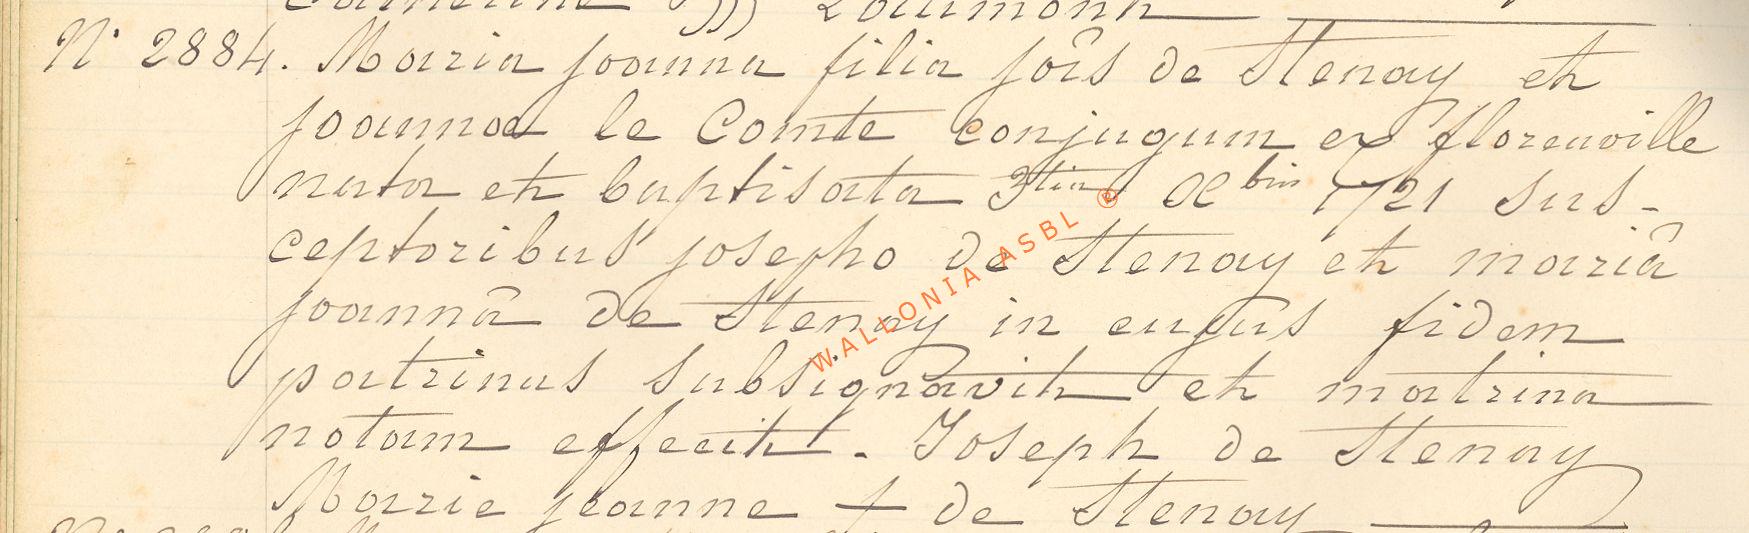 N° 2884. Maria joanna filia joîs de Stenay et
joannae le Comte conjugum ex florenville
nata et baptisata 3tia Xbris 1721 sus-
ceptoribus josepho de Stenay et mariâ
joannâ de Stenay in cujus fidem
patrinus subsignavit et matrina
notam effecit. Joseph de Stenay
Marie jeanne + de Stenay
WALLONIA ASBL ®